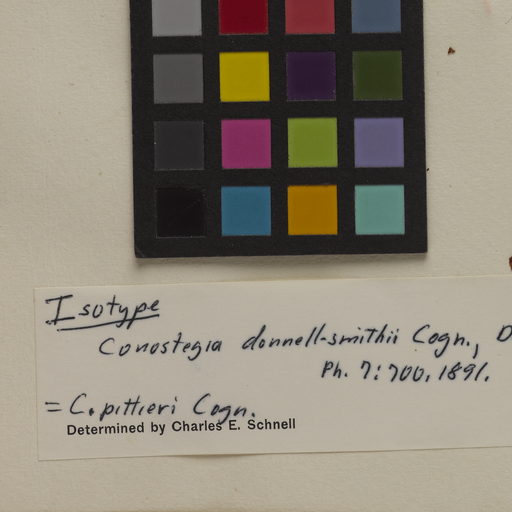 Isotype
Conostegia donnell-smithii Cogn., D
Ph. 7:700, 1891.
= C. pittieri Cogn.
Determined by Charles E. Schnell